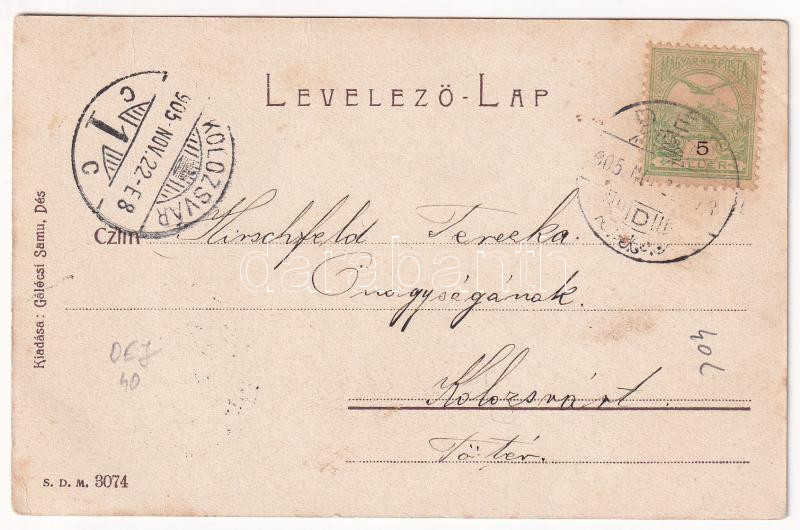 LEVELEZŐ-LAP
MAGYAR KIR. POSTA
5
KOLOZSVÁR
905 NOV. 22-E8
C 1 C
905 N
D
Czím Hirschfeld Terezka
Őnagyságának.
Kolozsvárt.
Főtér.
Kiadása: Gálócsi Samu, Dés
DEJ
40
40L
S. D. M. 3074
darabanth